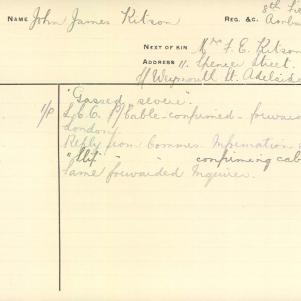 NAME John James Kitson REG. &C. 8th Fie
NEXT OF KIN Mrs F. E. Kitson
ADDRESS 11. Spencer Street.
Off Weymouth St. Adelaide
"Gassed severe".
Cable - confirmed - forwar
London
Reply from Commun. Information
confirming cab
Same forwarded Inquirer.